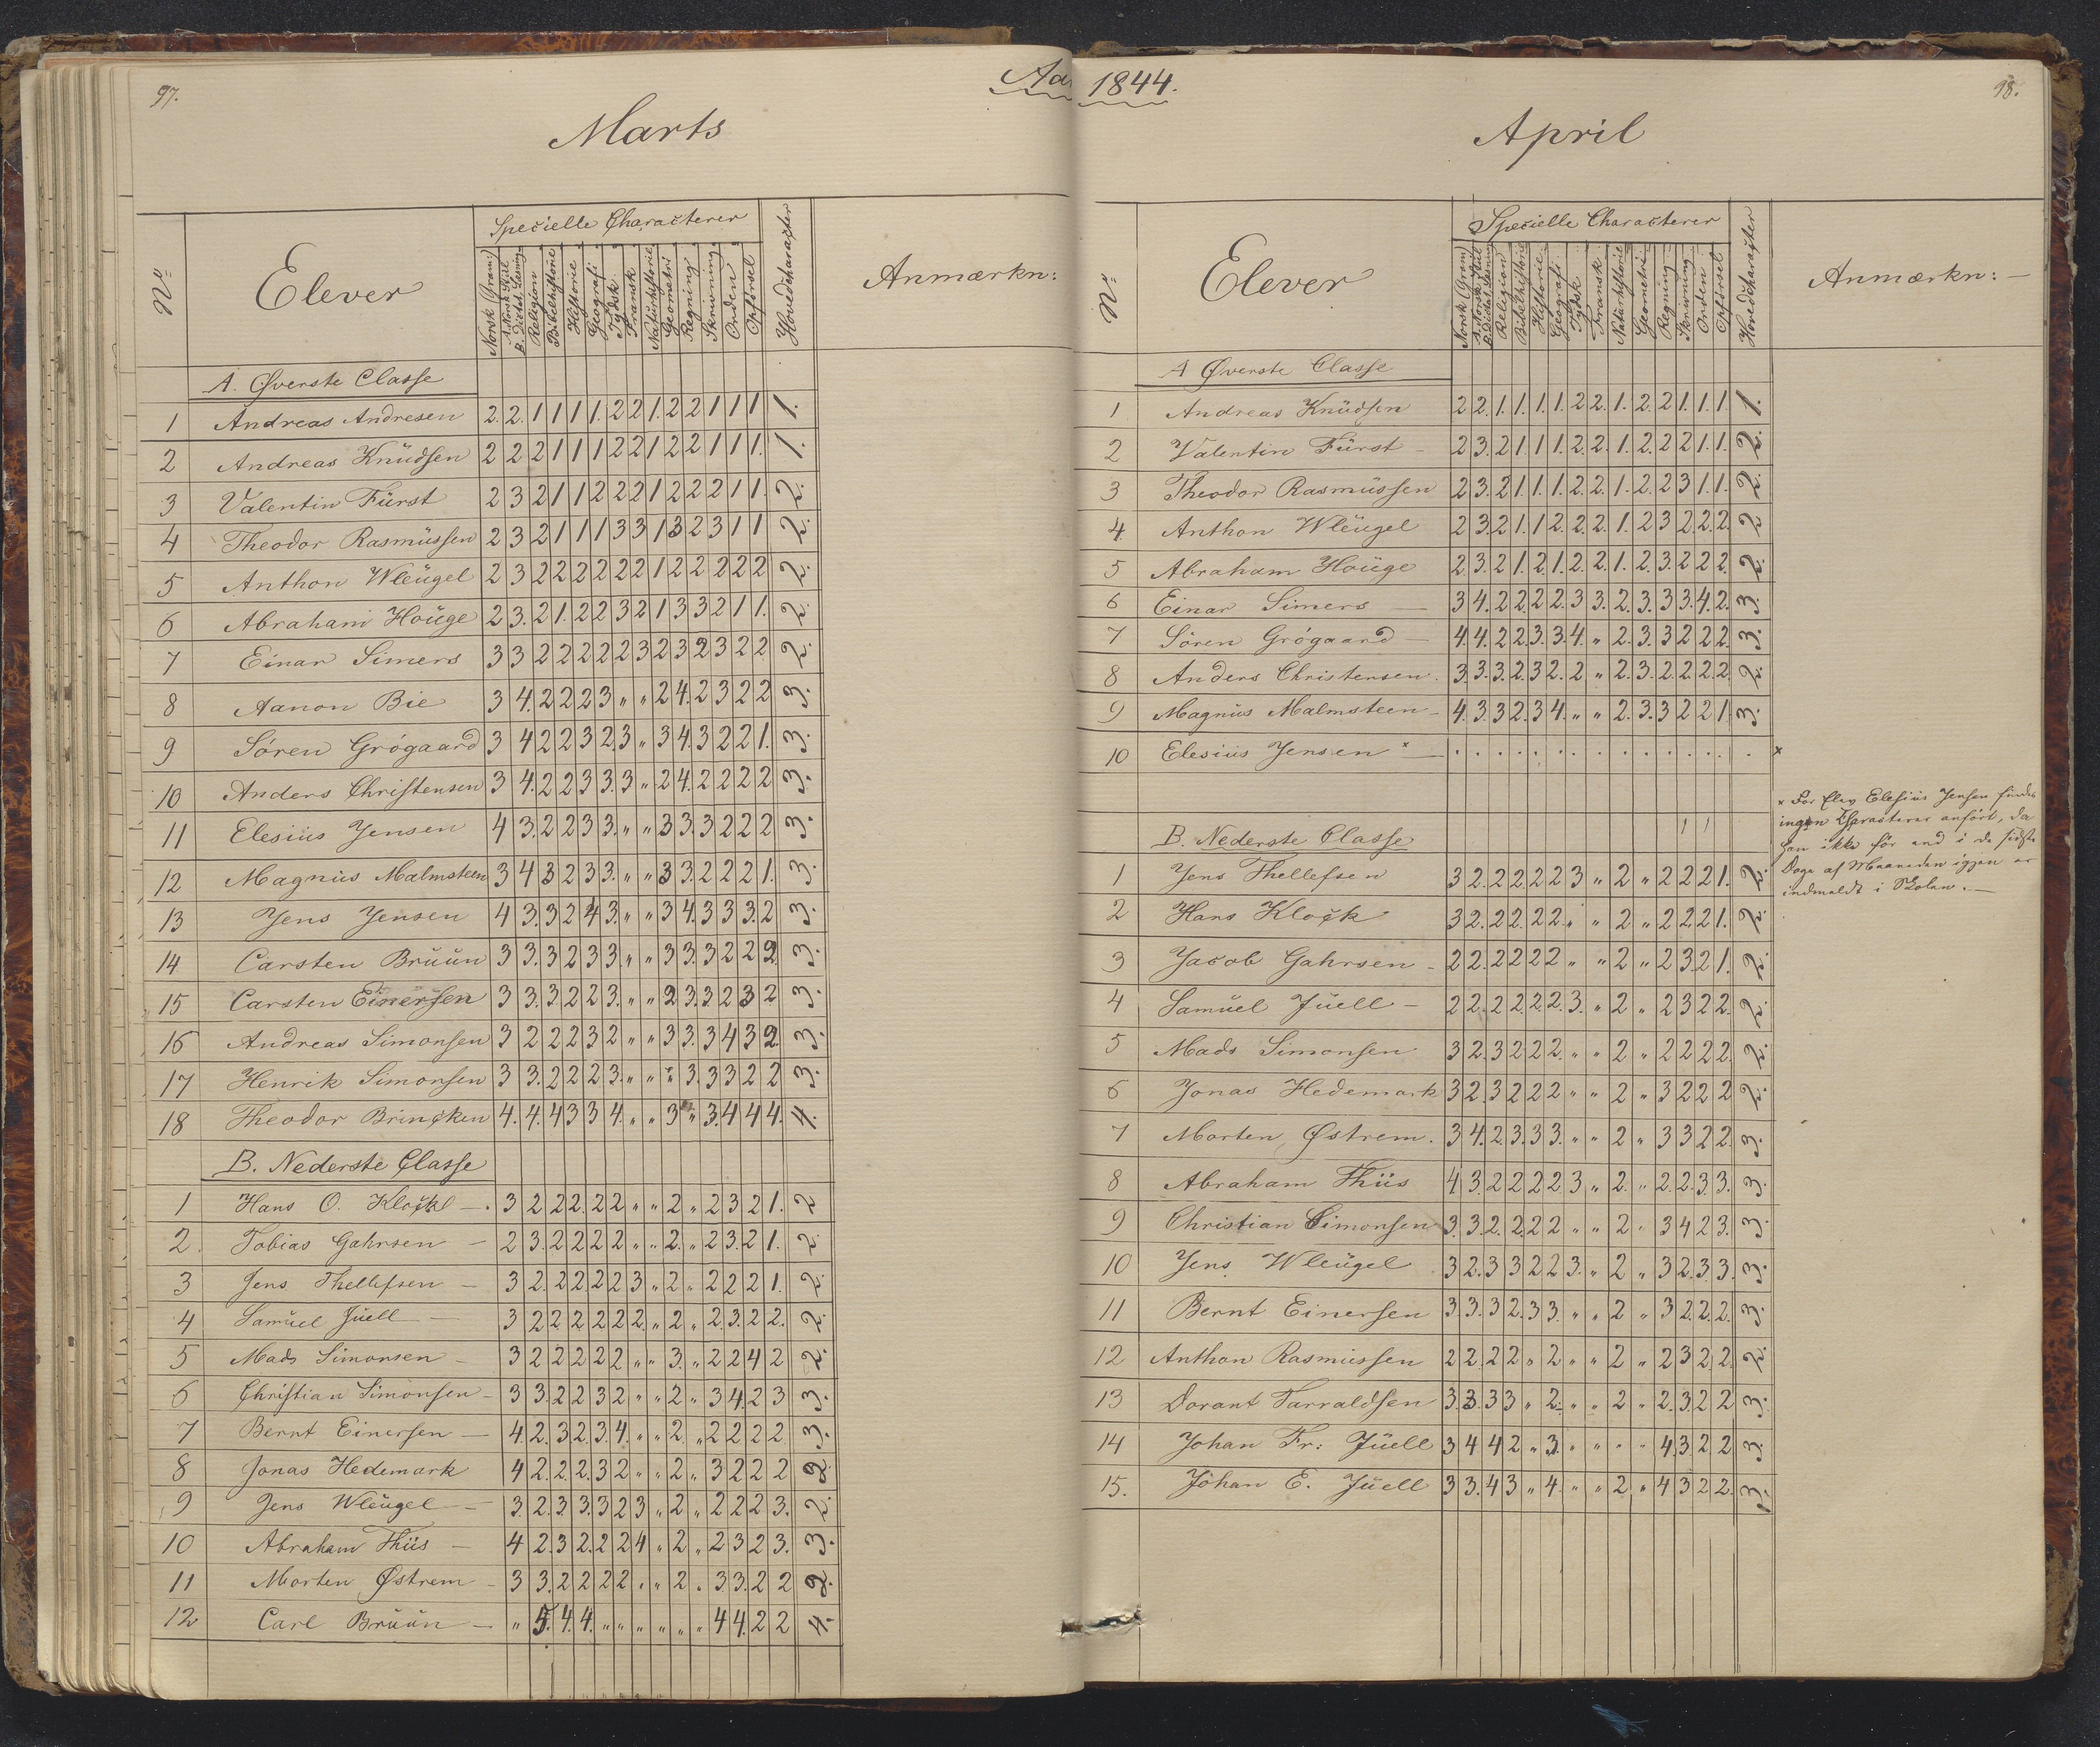 97.
Aa
Marts
No
Elever
Specielle Characterer
Norsk (Gram)
A. Norsk Stiil
B. Dictat. Læsning
Religion
Bibelhistorie
Historie
Geografi
Tydsk
Fransk
Naturhistorie
Geometri
Regning
Skrivning
Orden
Opførsel
Hovedcharacter
Anmærkn:
A. Øverste Classe
1 Andreas Andresen 2. 2. 1 1 1 1. 2 2 1. 2 2 1 1 1 1.
2 Andreas Knudsen 2 2 2 1 1 1 2 2 1 2 2 1 1 1. 1.
3 Valentin Fürst 2 3 2 1 1 2 2 2 1 2 2 2 1 1. 2.
4 Theodor Rasmüssen 2 3 2 1 1 1 3 3 1 3 2 3 1 1 2.
5 Anthon Wleügel 2 3 2 2 2 2 2 2 1 2 2 2 2 2 2.
6 Abraham Houge 2 3. 2 1. 2 2 3 2 1 3 3 2 1 1. 2.
7 Einar Simers 3 3 2 2 2 2 2 3 2 3 2 3 2 2 2.
8 Aanon Bie 3 4. 2 2 2 3 " " 2 4. 2 3 2 2 3.
9 Sören Grögaard 3 4 2 2 3 2. 3 " 3 4. 3 2 2 1. 3.
10 Anders Christensen 3 4. 2 2 3 3. 3 " 2 4. 2 2 2 2 3.
11 Elesius Jensen 4 3. 2 2 3 3. " " 3 3. 3 2 2 2 3.
12 Magnus Malmsteen 3 4 3 2 3 3. " " 3 3. 2 2 2 1. 3.
13 Jens Jensen 4 3. 3 2 4 3. " " 3 4. 3 3 3. 2 3.
14 Carsten Bruun 3 3. 3 2 3 3. " " 3 3. 3 2 2 2. 3.
15 Carsten Einersen 3 3. 3. 2 2 3. " " 2 3. 3 2 3 2 3.
16 Andreas Simonsen 3 2 2 2 3 2 " " 3 3. 3 4 3 2. 3.
17 Henrik Simonsen 3 3. 2 2 2 3. " " " 3. 3 3 2 2 3.
18 Theodor Brincken 4. 4. 4 3 3 4. " " 3 " 3. 4 4 4. 4.
B. Nederste Classe
1 Hans O. Klock 3 2 2 2 2 2 " " 2 " 2 3 2 1. 2
2. Tobias Gahrsen 2 3. 2 2 2 2 " " 2. " 2 3. 2 1. 2.
3 Jens Thellefsen 3 2. 2 2 2 2 3 " 2 " 2 2 2 1. 2.
4 Samuel Juell 3 2 2 2 2 2 2. " 2 " 2. 3. 2 2. 2.
5 Mads Simonsen 3 2 2 2 2 2 " " 3. " 2 2 4 2 2.
6 Christian Simonsen 3 3. 2 2 3 2 " " 2 " 3 4. 2 3 3.
7 Bernt Einersen 4. 2. 3 2. 3. 4. " " 2. " 2 2 2 2 3.
8 Jonas Hedemark 4 2. 2. 2. 3 2 " " 2 " 3 2 2 2 2.
9 Jens Wleügel 3. 2. 3. 3. 3 2 3 " 2 " 2 2 2 3. 2.
10 Abraham Thiis 4 2. 3 2. 2 2 4 " 2 " 2 3 2 3. 3.
11 Morten Østrem 3 3. 2 2 2 2 " " 2 " 3 3. 2 2 2.
12 Carl Bruun " 5. 4. 4. " " " " " " 4 4. 2 2 4.
1844.
98.
April
No
Elever
Specielle Characterer
Norsk (Gram)
A. Norsk Stiil
B. Dictat. Læsning
Religion
Bibelhistorie
Historie
Geografi
Tydsk
Fransk
Naturhistorie
Geometri
Regning
Skrivning
Orden
Opførsel
Hovedcharacter
Anmærkn:
A Øverste Classe
1 Andreas Knudsen 2 2. 1. 1. 1. 1. 2 2. 1. 2. 2 1. 1. 1. 1.
2 Valentin Fürst 2 3. 2 1 1 1. 2. 2. 1. 2. 2 2 1. 1. 2.
3 Theodor Rasmüssen 2 3. 2 1. 1. 1. 2. 2. 1. 2. 2 3 1. 1. 2.
4. Anthon Wleügel 2 3. 2 1. 1 2. 2. 2. 1. 2 3 2 2. 2. 2
5 Abraham Houge 2. 3. 2 1. 2. 1. 2. 2. 1. 2. 3. 2 2 2. 2.
6 Einar Simers 3 4. 2 2. 2 2. 3 3. 2. 3. 3 3. 4. 2. 3.
7 Sören Grögaard 4. 4. 2 2. 3. 3. 4. " 2. 3. 3 2 2 2. 3.
8 Anders Christensen. 3. 3. 3. 2. 3 2. 2 " 2. 3. 2. 2. 2. 2. 2.
9 Magnus Malmsteen 4. 3. 3 2. 3 4. " " 2. 3. 3 2 2 1. 3.
10 Elesius Jensen x . . . . . . . . . . . . . . . x
x For Elev Elesius Jensen findes
ingen Characterer anfört, da
han ikke för end i de sidste
Dage af Maaneden igjen er
indmeldt i Skolen.
B. Nederste Classe
1 Jens Thellefsen 3 2. 2 2. 2 2 3 " 2 " 2 2 2 1. 2.
2 Hans Klock 3 2. 2 2. 2 2. " " 2 " 2 2. 2 1. 2.
3 Jacob Gahrsen 2 2. 2 2 2 2 " " 2 " 2 3. 2 1. 2.
4 Samuel Juell 2 2. 2 2. 2. 2. 3. " 2 " 2 3 2 2. 2.
5 Mads Simonsen 3 2. 3 2 2 2. " " 2 " 2 2 2 2. 2.
6 Jonas Hedemark 3 2. 3 2 2 2 " " 2 " 3 2 2 2 2.
7 Morten Østrem. 3 4. 2. 3. 3 3. " " 2 " 3 3 2 2. 3.
8 Abraham Thiis 4 3. 2 2 2 2 3 " 2. " 2. 2. 3. 3. 3.
9 Christian Simonsen 3. 3. 2. 2. 2 2 " " 2 " 3 4 2 3. 3.
10 Jens Wleügel 3 2. 3 3 2 2 3. " 2 " 3 2. 3. 3. 3.
11 Bernt Einersen 3. 3. 3 2. 3 3. " " 2 " 3 2. 2. 2. 3.
12 Anthon Rasmussen 2 2. 2 2 " 2 " " 2 " 2 3 2 2. 2.
13 Dorant Tarraldsen 3. 3. 3 3 " 2. " " 2 " 2. 3. 2 2 3.
14 Johan Fr: Juell 3 4 4 2 " 3. " " " " 4. 3. 2 2 3.
15. Johan E. Juell 3 3. 4 3 " 4. " " 2 " 4 3 2 2. 3.